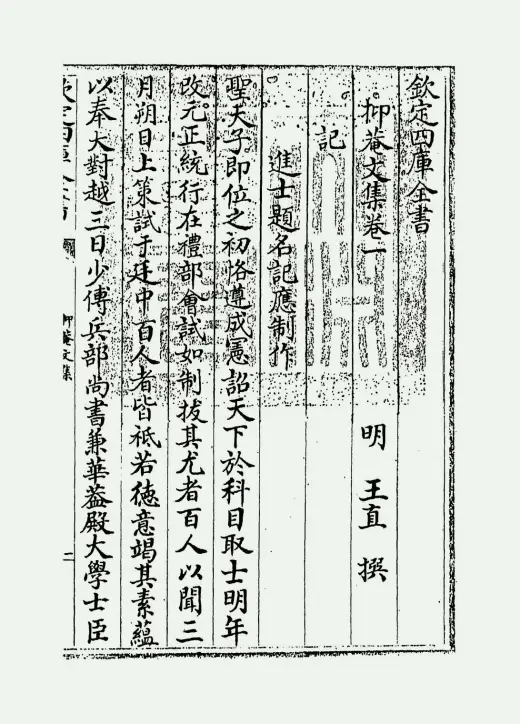 欽定四庫全書
抑菴文集卷一
明 王直 撰
記
進士題名記應制作
聖天子即位之初恪遵成憲詔天下於科目取士明年
改元正統行在禮部會試如制拔其尤者百人以聞三
月朔日上策試于廷中百人者皆祗若德意竭其素蘊
以奉大對越三日少傅兵部尚書兼華葢殿大學士臣
抑菴文集